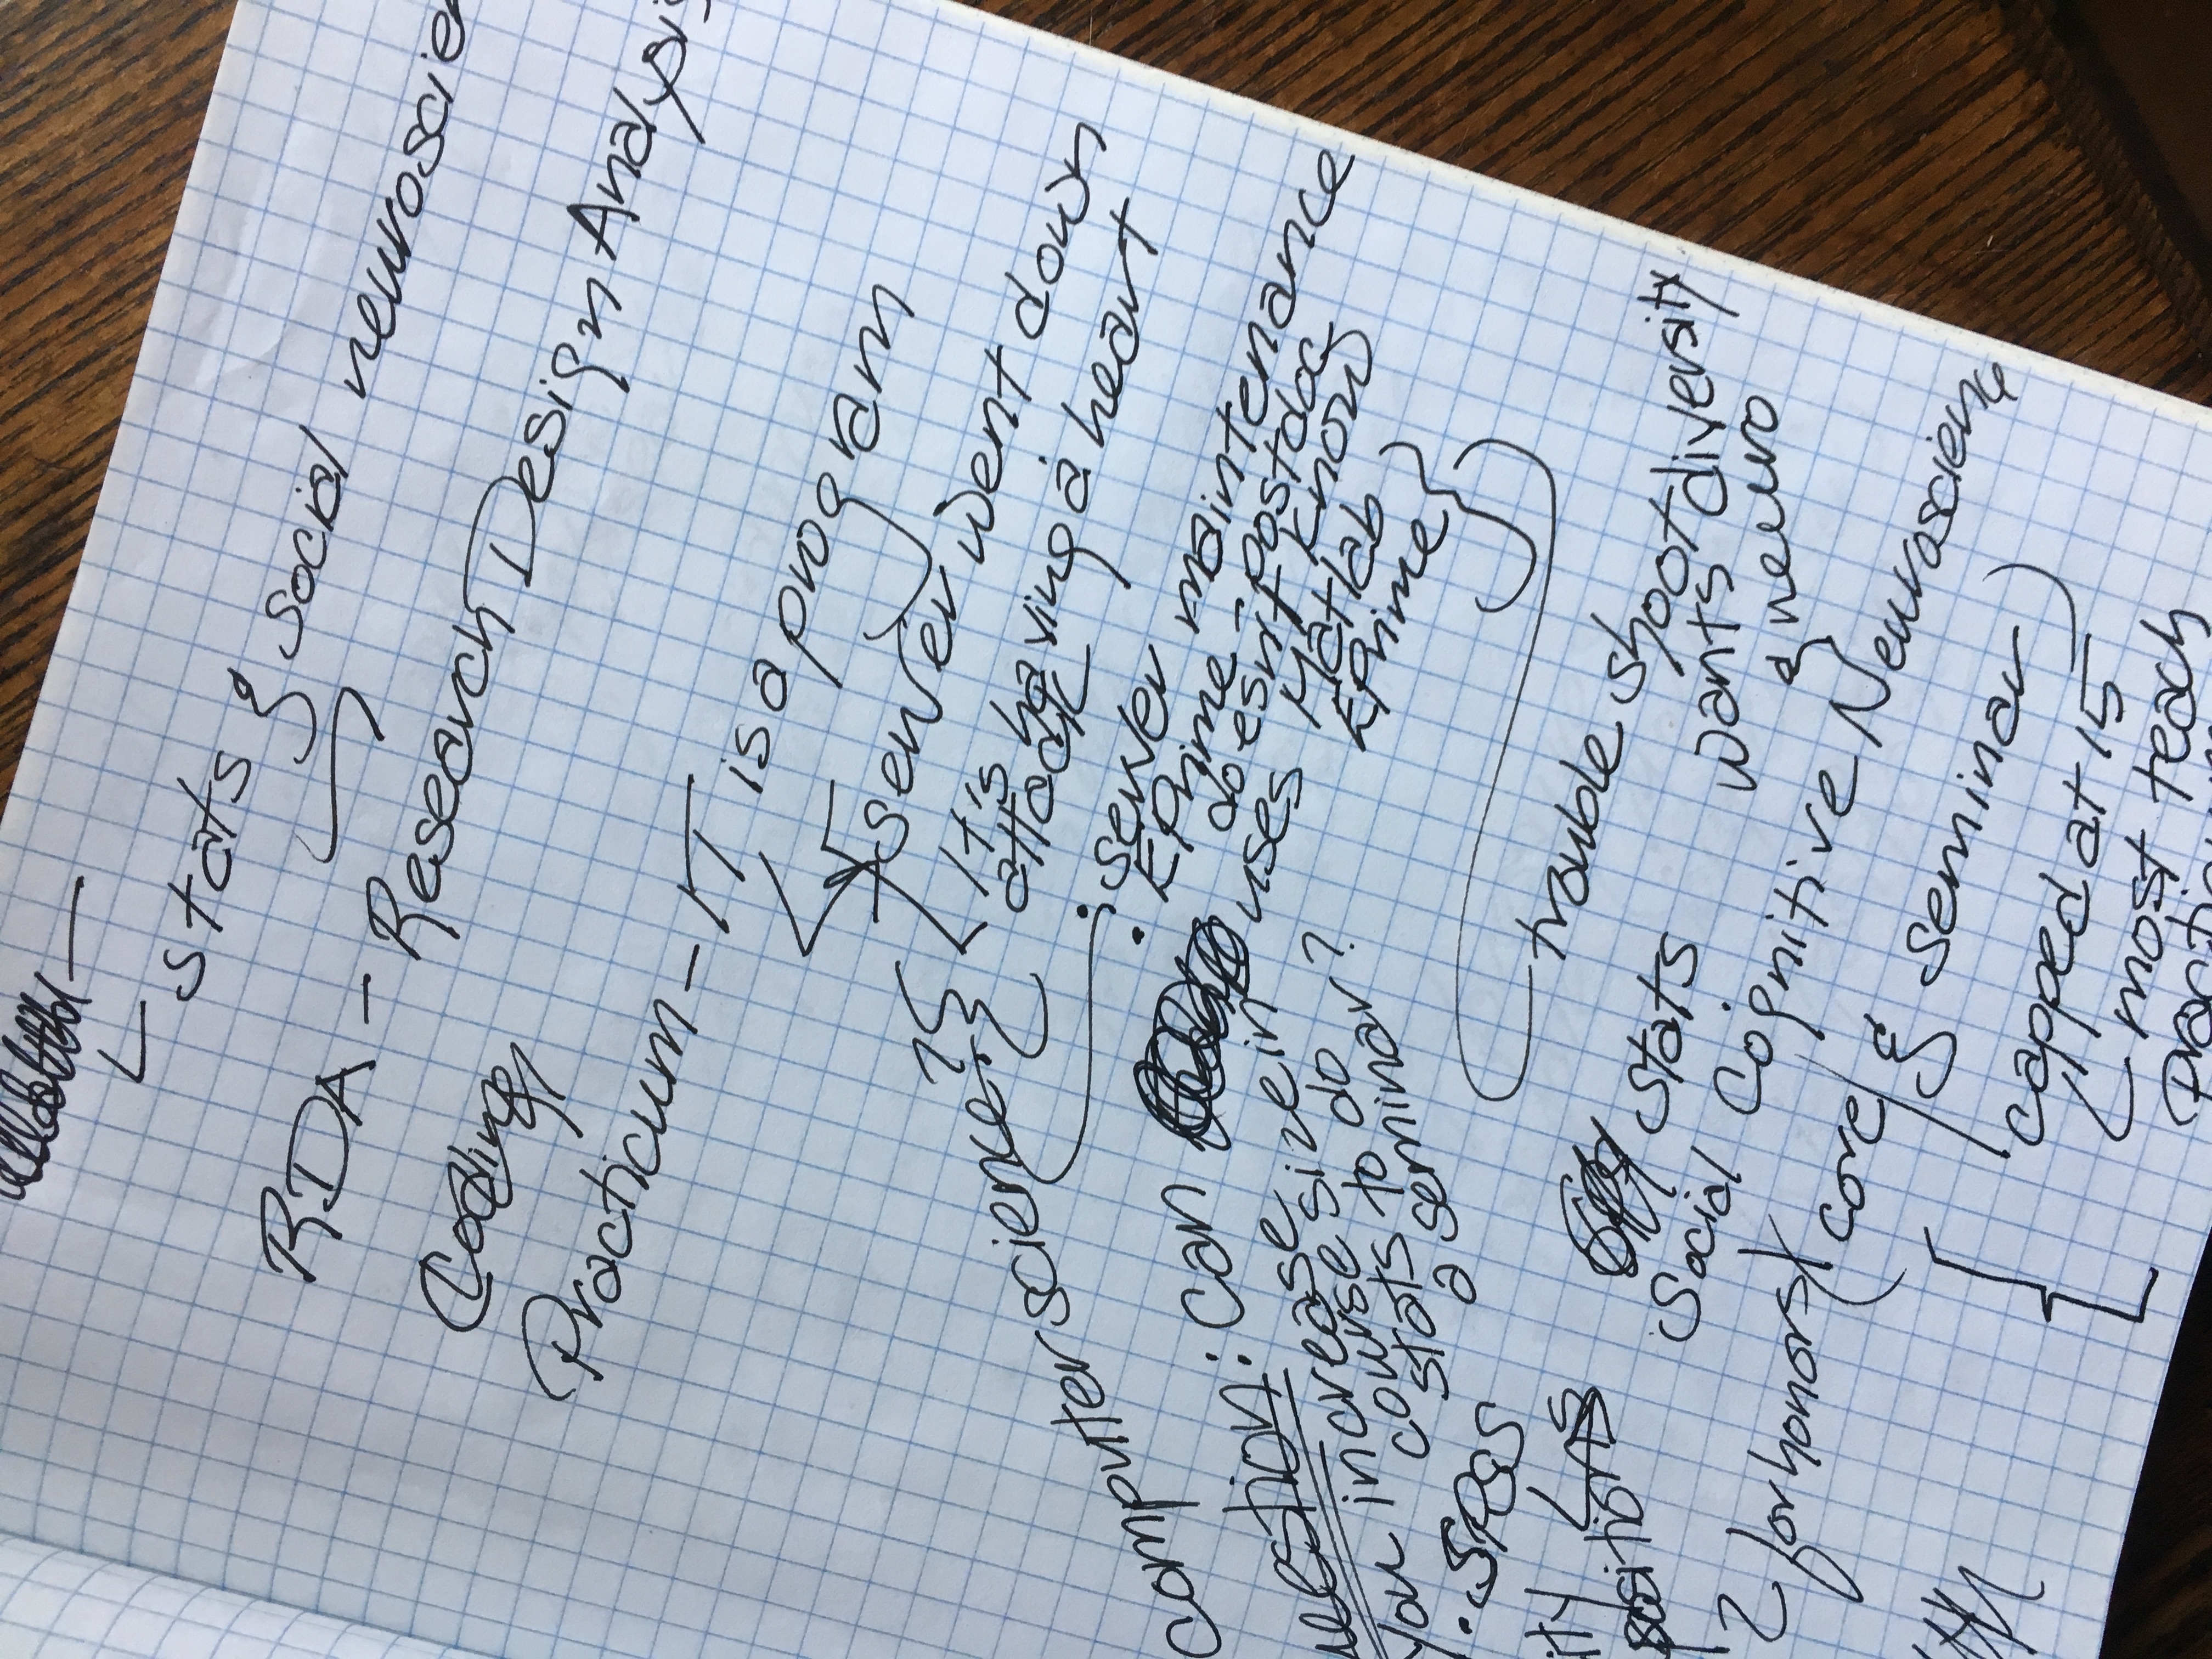 stats & social
neuroscie
RDA - Research Design Analysis
Coding
Practicum - IT is a program
server went down
It's having a heart
attack
computer science??
• server maintenance
• EPrime - postdoc
doesn't know
uses Matlab
EPrime
trouble shoot
Can
you increase size in
course to do
stats
a seminar?
• SPSS
stats
wants diversity
& neuro
Social Cognitive Neuroscience
2 for honors
(core) & seminar
capped at 15
most teach